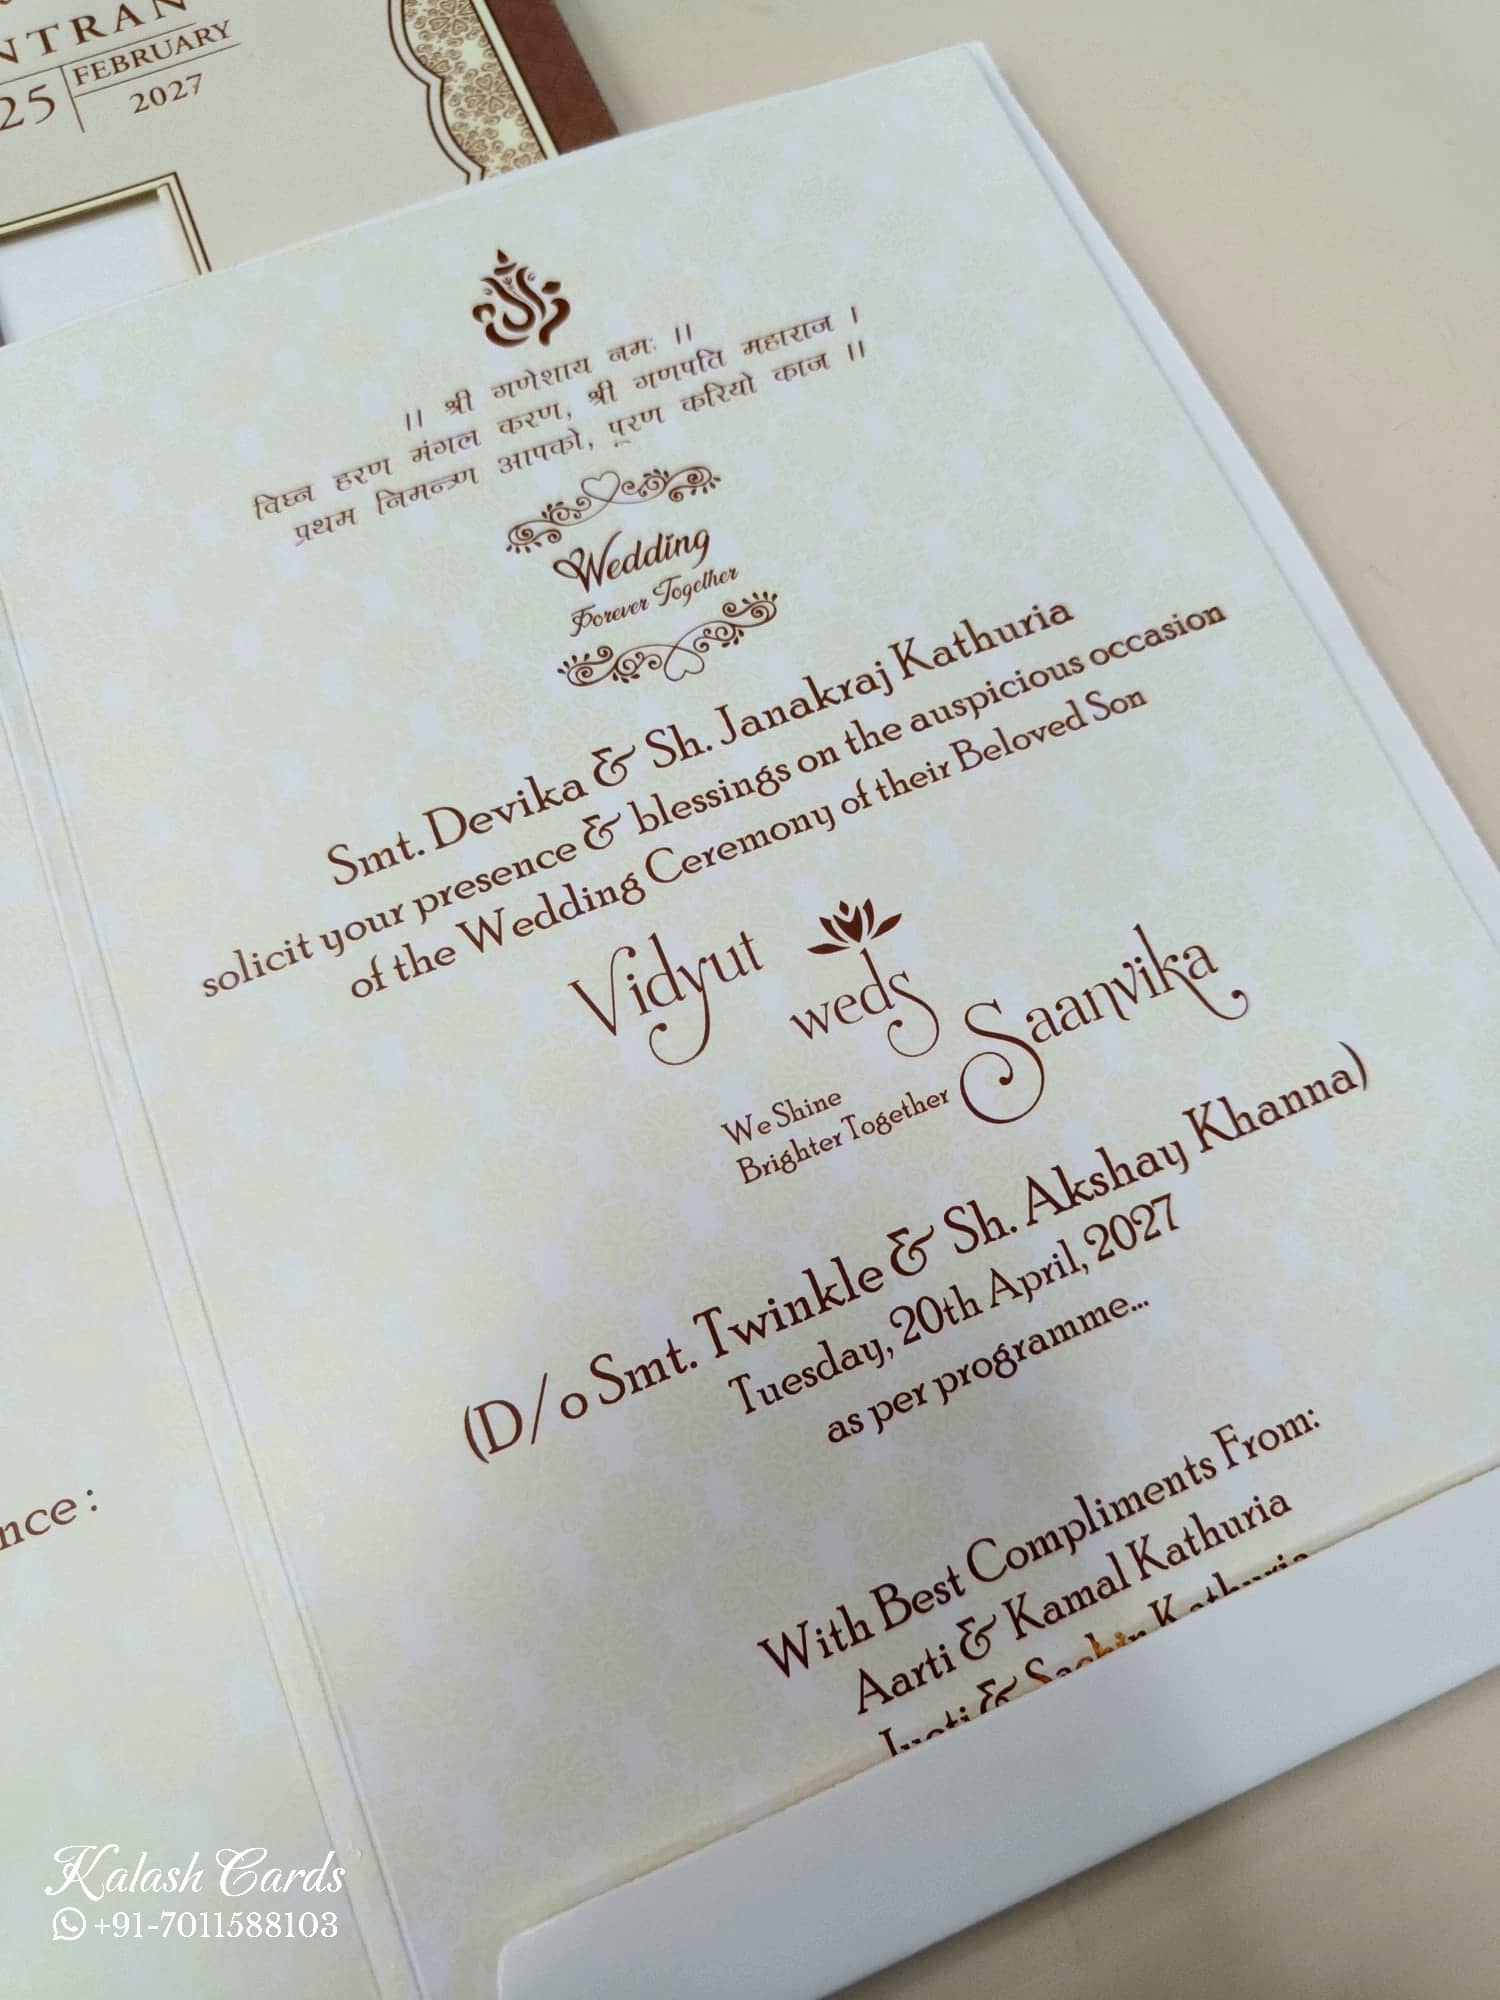 NTRAN
25 FEBRUARY
2027
।। श्री गणेशाय नमः ।।
विघ्न हरण मंगल करण, श्री गणपति महाराज ।
प्रथम निमन्त्रण आपको, पूरण करियो काज ।।
Wedding
Forever Together
Smt. Devika & Sh. Janakraj Kathuria
solicit your presence & blessings on the auspicious occasion
of the Wedding Ceremony of their Beloved Son
Vidyut weds Saanvika
We Shine
Brighter Together
(D/o Smt. Twinkle & Sh. Akshay Khanna)
Tuesday, 20th April, 2027
as per programme...
With Best Compliments From:
Aarti & Kamal Kathuria
Jyoti & Sachin Kathuria
nce :
Kalash Cards
+91-7011588103